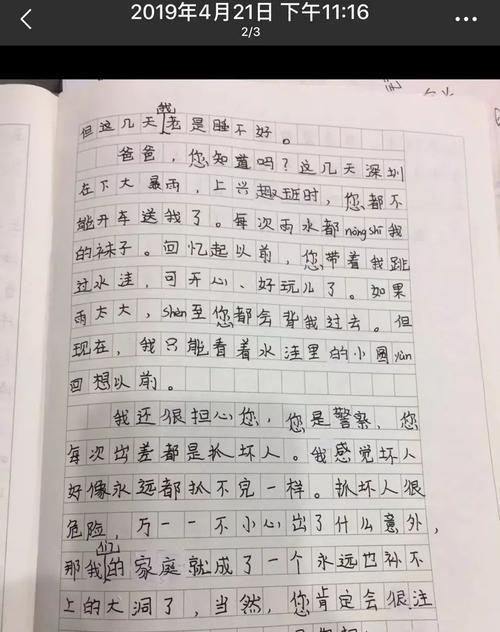 2019年4月21日 下午11:16
2/3
但这几天我老是睡不好。
爸爸，您知道吗？这几天深圳
在下大最雨，上兴趣班时，您都不
能开车送我了。每次雨水都nòngshī我
的袜子。回忆起以前，您带着我跳
过水洼，可开心、好玩儿了。如果
雨太大，shèn至您都会背我过去。但
现在，我只能看着水洼里的小圈yùn
回想以前。
我还很担心您，您是警察，您
每次出差都是抓坏人。我感觉坏人
好像永远都抓不完一样。抓坏人很
危险，万一一不小心出了什么意外，
那我们的家庭就成了一个永远也补不
上的大洞了，当然，您肯定会很注